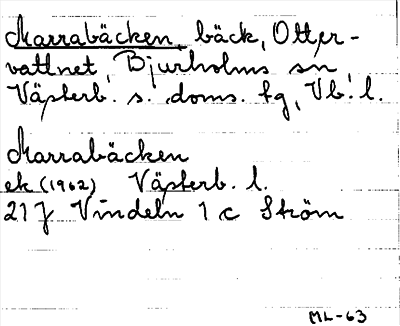 Marrabäcken, bäck, Otter-
vattnet, Bjurholms sn,
Västerb. s. doms. tg, Vb. l.
Marrabäcken
ek (1962) Västerb. l.
21 J Vindeln 1 c Ström
ML-63